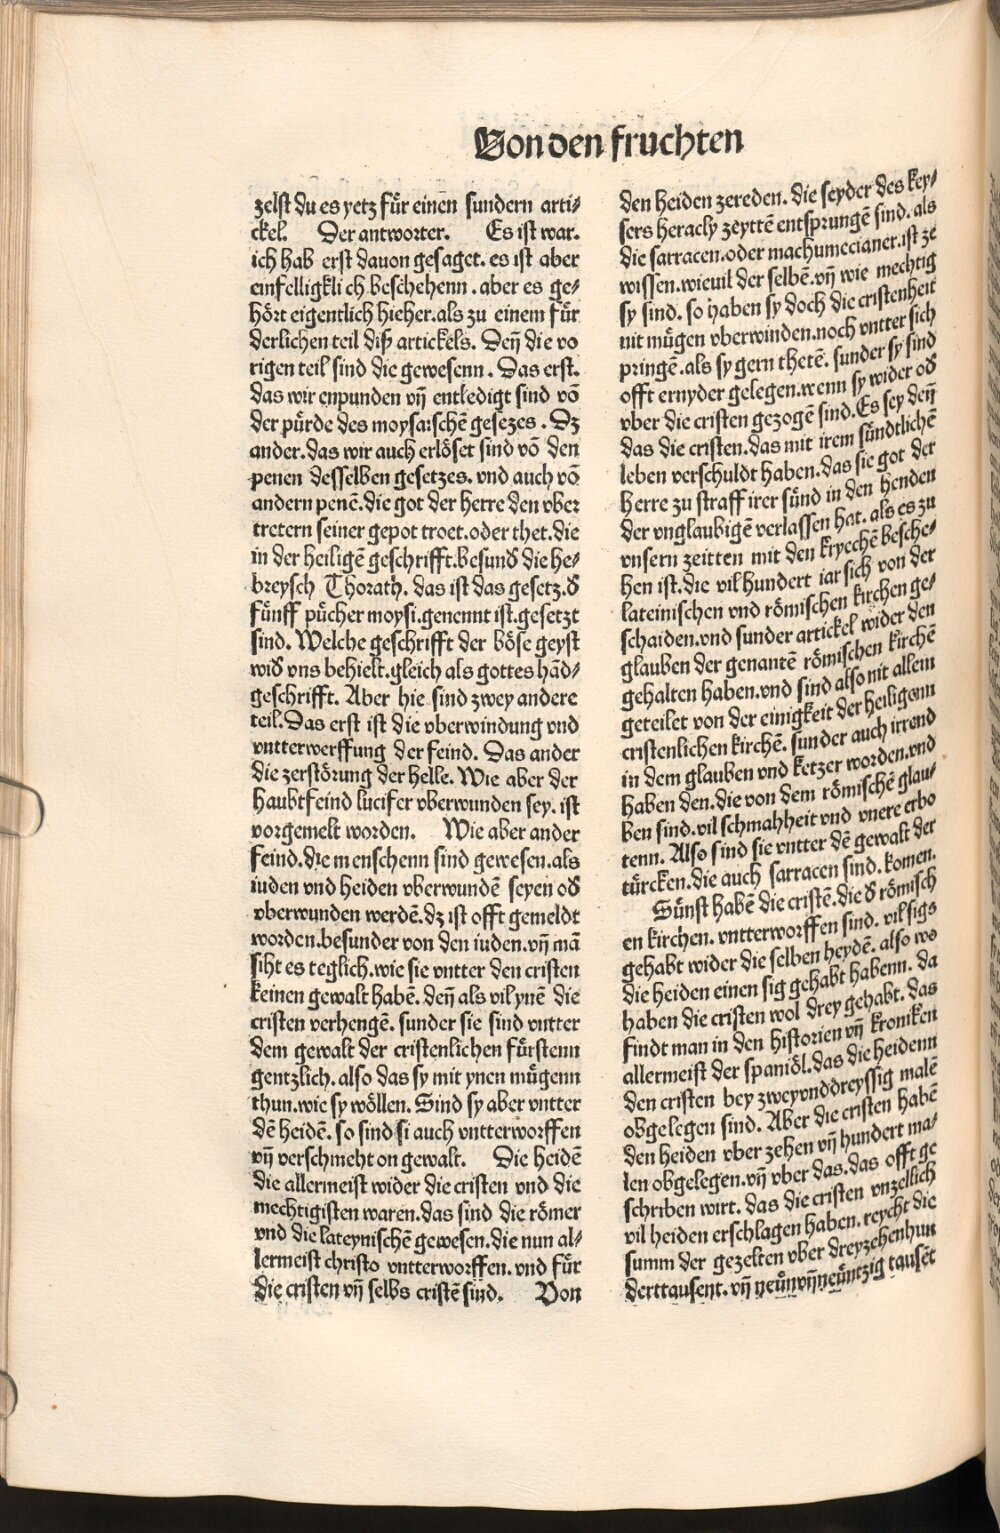 Von den fruchten
zelst du es yetz für einen sundern arti⸗
ckel. Der antworter. Es ist war.
ich hab erst dauon gesaget. es ist aber
einfelligkli ch beschehenn. aber es ge⸗
hört eigentlich hieher. als zu einem für
derlichen teil diß artickels. Deñ die vo
rigen teil sind die gewesenn. Das erst.
das wir enpunden vñ entledigt sind võ
der pürde des moysaischẽ gesezes. Dz
ander. das wir auch erlöset sind võ den
penen desselben gesetzes. vnd auch võ
andern penẽ. die got der herre den vber
tretern seiner gepot troet. oder thet. die
in der heiligẽ geschrifft. besunď die he⸗
breysch Thorath. das ist das gesetz. ď
fünff pücher moysi. genennt ist. gesetzt
sind. Welche geschrifft der böse geyst
wiď vns behielt. gleich als gottes hãd⸗
geschrifft. Aber hie sind zwey andere
teil. Das erst ist die vberwindung vnd
vntterwerffung der feind. Das ander
die zerstörung der helle. Wie aber der
haubtfeind lucifer vberwunden sey. ist
vorgemelt worden. Wie aber ander
feind. die menschenn sind gewesen. als
iuden vnd heiden vberwundẽ seyen oď
vberwunden werdẽ. dz ist offt gemeldt
worden. besunder von den iuden. vñ mã
siht es teglich. wie sie vntter den cristen
keinen gewalt habẽ. deñ als vil ynẽ die
cristen verhengẽ. sunder sie sind vntter
dem gewalt der cristenlichen fürstenn
gentzlich. also das sy mit ynen mügenn
thun. wie sy wöllen. Sind sy aber vntter
dẽ heidẽ. so sind si auch vntterworffen
vñ verschmeht on gewalt. Die heidẽ
die allermeist wider die cristen vnd die
mechtigisten waren. das sind die römer
vnd die lateynischẽ gewesen. die nun al⸗
lermeist christo vntterworffen. vnd für
die cristen vñ selbs cristẽ sind. Von
den heiden zereden. die seyder des key⸗
sers heracly zeyttẽ entsprungẽ sind. als
die sarracen. oder machumecianer. ist ze
wissen. wieuil der selbẽ. vñ wie mechtig
sy sind. so haben sy doch die cristenheit
nit mügen vberwinden. noch vntter sich
pringẽ. als sy gern thetẽ. sunder sy sind
offt ernyder gelegen. wenn sy wider oď
vber die cristen gezogẽ sind. Es sey deñ
das die cristen. das mit irem sündtlichẽ
leben verschuldt haben. das sie got der
herre zu straff irer sünd in den henden
der vnglaubigẽ verlassen hat. als es zu
vnsern zeitten mit den kryechẽ besche⸗
hen ist. die vil hundert iar sich von der
lateinischen vnd römischen kirchen ge⸗
schaiden. vnd sunder artickel wider den
glauben der genantẽ römischen kirchẽ
gehalten haben. vnd sind also nit allein
geteilet von der einigkeit der heiligenn
cristenlichen kirchẽ. sunder auch irrend
in dem glauben vnd ketzer worden. vnd
haben den. die von dem römischẽ glau⸗
ben sind. vil schmahheit vnd vnere erbo
tenn. Also sind sie vntter dẽ gewalt der
türcken. die auch sarracen sind. komen.
Sünst habẽ die cristẽ. die ď römisch
en kirchen. vntterworffen sind. vil sigs
gehabt wider die selben heydẽ. also wo
die heiden einen sig gehabt habenn. da
haben die cristen wol drey gehabt. das
findt man in den historien vñ kroniken
allermeist der spaniöl. das die heidenn
den cristen bey zweyvnddreyssig malẽ
obgelegen sind. Aber die cristen habẽ
den heiden vber zehen vñ hundert ma⸗
len obgelegen. vñ vber das. das offt ge
schriben wirt. das die cristen vnzellich
vil heiden erschlagen haben. reycht die
summ der gezelten vber dreyzehenhun
derttausent. vñ neünvñneüntzig tausẽt